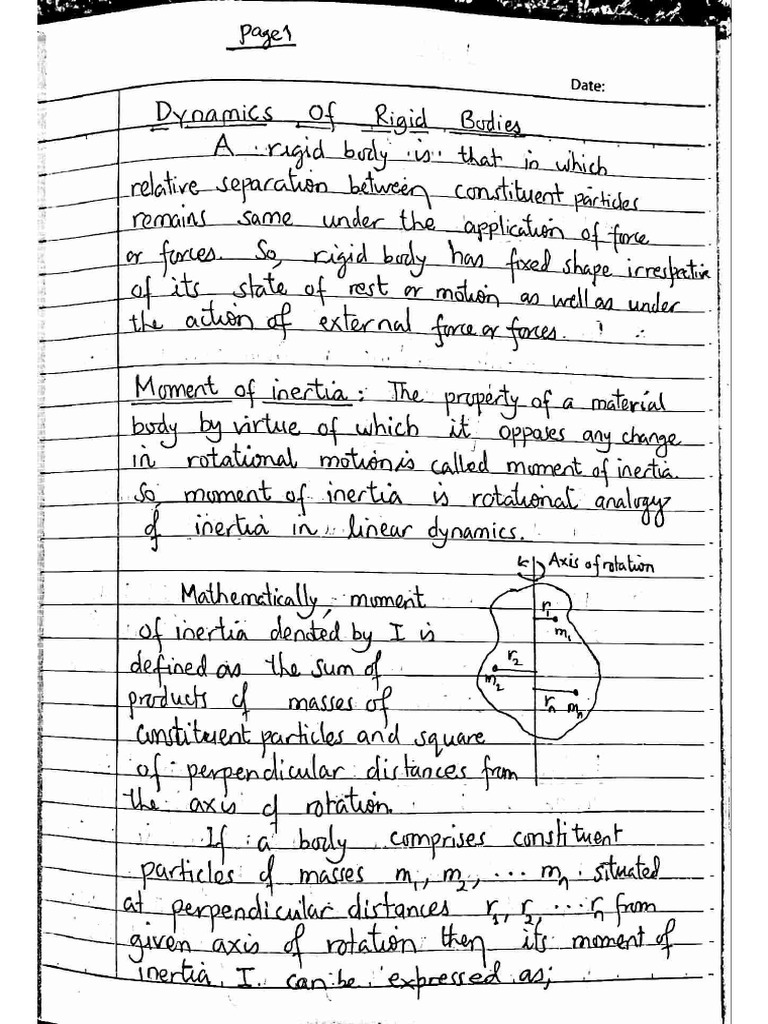 Page 1
Date:
Dynamics Of Rigid Bodies
A rigid body is that in which
relative separation between constituent particles
remains same under the application of force
or forces. So, rigid body has fixed shape irrespective
of its state of rest or motion as well as under
the action of external force or forces.
Moment of inertia: The property of a material
body by virtue of which it opposes any change
in rotational motion is called moment of inertia.
So, moment of inertia is rotational analogy
of inertia in linear dynamics.
Axis of rotation
Mathematically, moment
of inertia denoted by I is
defined as the sum of
products of masses of
constituent particles and square
of perpendicular distances from
the axis of rotation.
r₁
m₁
r₂
m₂
rₙ mₙ
If a body comprises constituent
particles of masses m₁, m₂, ... mₙ situated
at perpendicular distances r₁, r₂, ... rₙ from
given axis of rotation then its moment of
inertia, I can be expressed as;